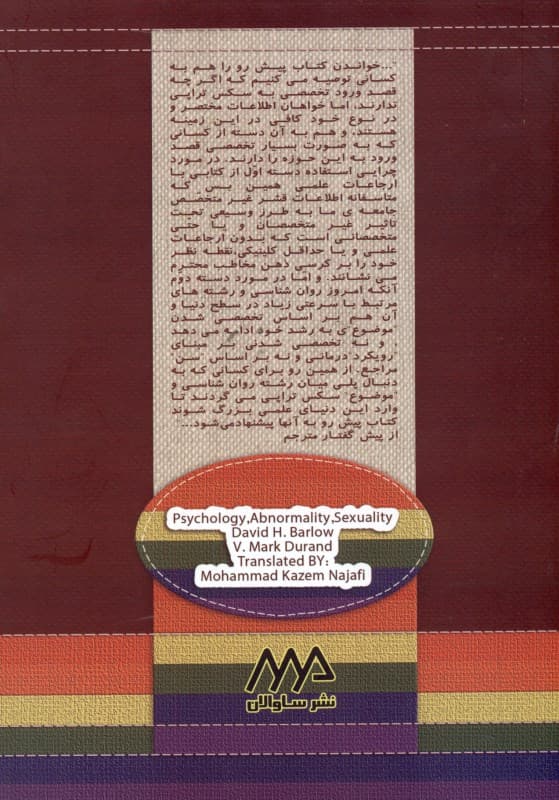 "...خواندن کتاب پیش رو را هم به
کسانی توصیه می کنیم که اگر چه
قصد ورود تخصصی به سکس تراپی
ندارند، اما خواهان اطلاعات مختصر و
در نوع خود کافی در این زمینه
هستند، و هم به آن دسته از کسانی
که به صورت بسیار تخصصی قصد
ورود به این حوزه را دارند. در مورد
چرایی استفاده دسته اول از کتابی با
ارجاعات علمی همین بس که
متاسفانه اطلاعات قشر غیر متخصص
جامعه ی ما به طرز وسیعی تحت
تاثیر غیر متخصصان و یا حتی
متخصصانی است که بدون ارجاعات
علمی و یا حداقل کلینیکی، نقطه نظر
خود را بر کرسی ذهن مخاطب محترم
می نشانند. و اما در مورد دسته دوم
آنکه امروز روان شناسی و رشته های
مرتبط با سرعتی زیاد در سطح دنیا و
آن هم بر اساس تخصصی شدن
"موضوع"ی به رشد خود ادامه می دهد
و نه تخصصی شدنی بر مبنای
"رویکرد درمانی و نه بر اساس "سن"
مراجع. از همین رو برای کسانی که به
دنبال پلی میان رشته روان شناسی و
"موضوع" سکس تراپی می گردند تا
وارد این دنیای علمی بزرگ شوند
کتاب پیش رو به آنها پیشنهاد می شود..."
از پیش گفتار مترجم
Psychology,Abnormality,Sexuality
David H. Barlow
V. Mark Durand
Translated BY:
Mohammad Kazem Najafi
نشر ساوالان